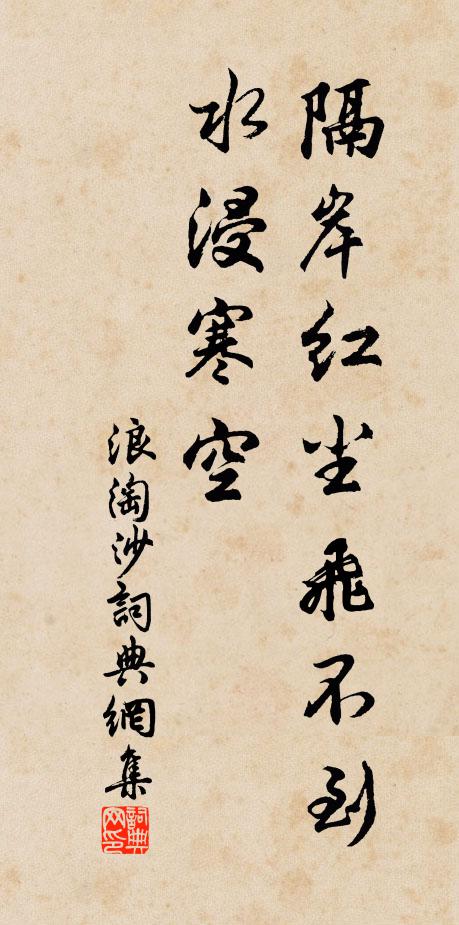 隔岸红尘飞不到
水浸寒空
浪淘沙詞典網集
詞典网印